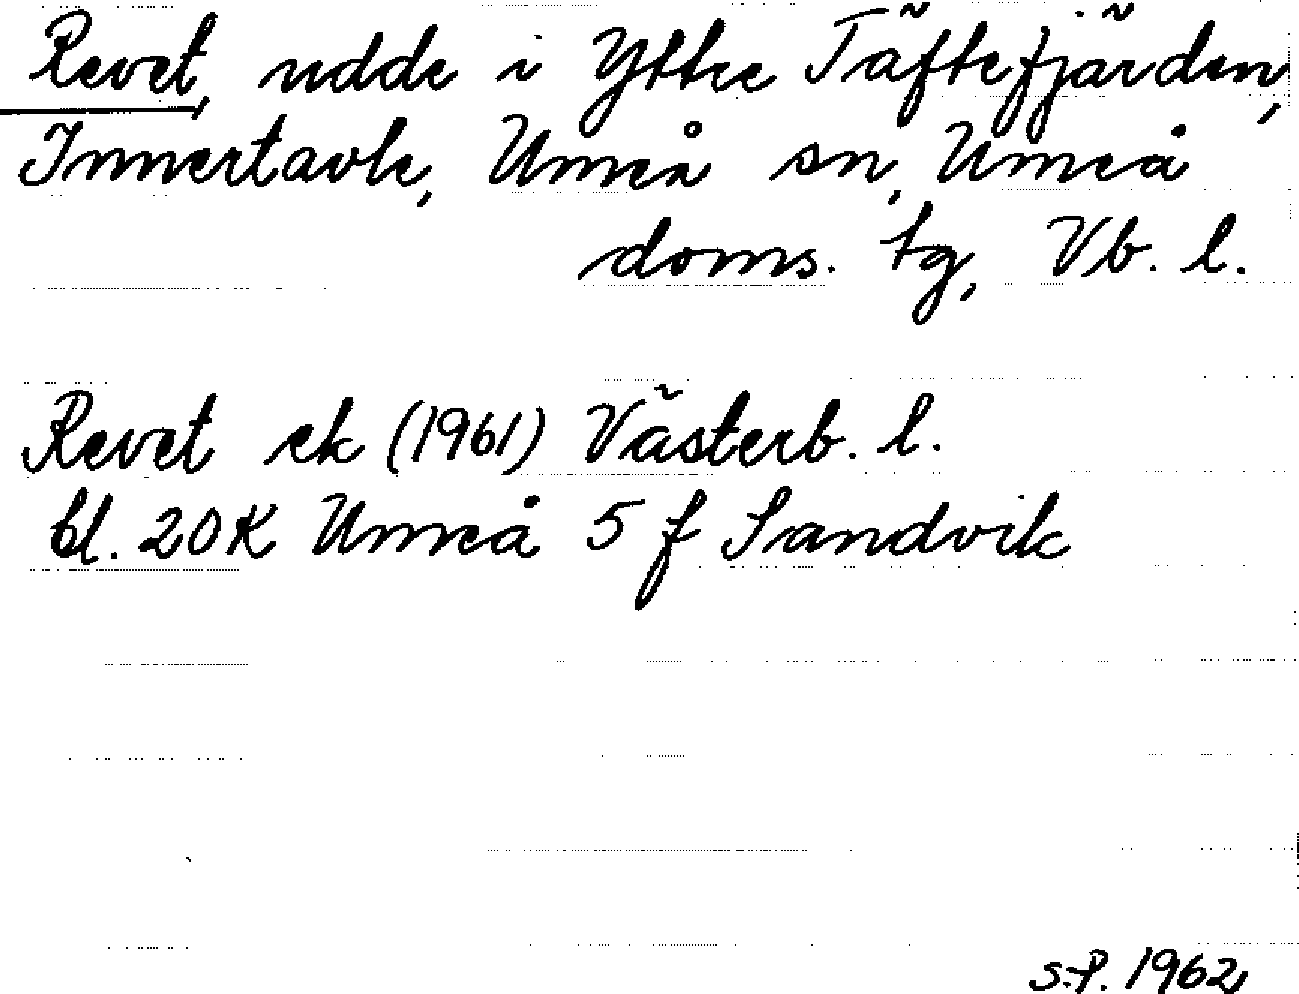 Revet, udde i Yttre Täftefjärden,
Innertavle, Umeå sn, Umeå
doms. tg, Vb. l.
Revet ek (1961) Västerb. l.
bl. 20K Umeå 5 f Sandvik
S.P. 1962